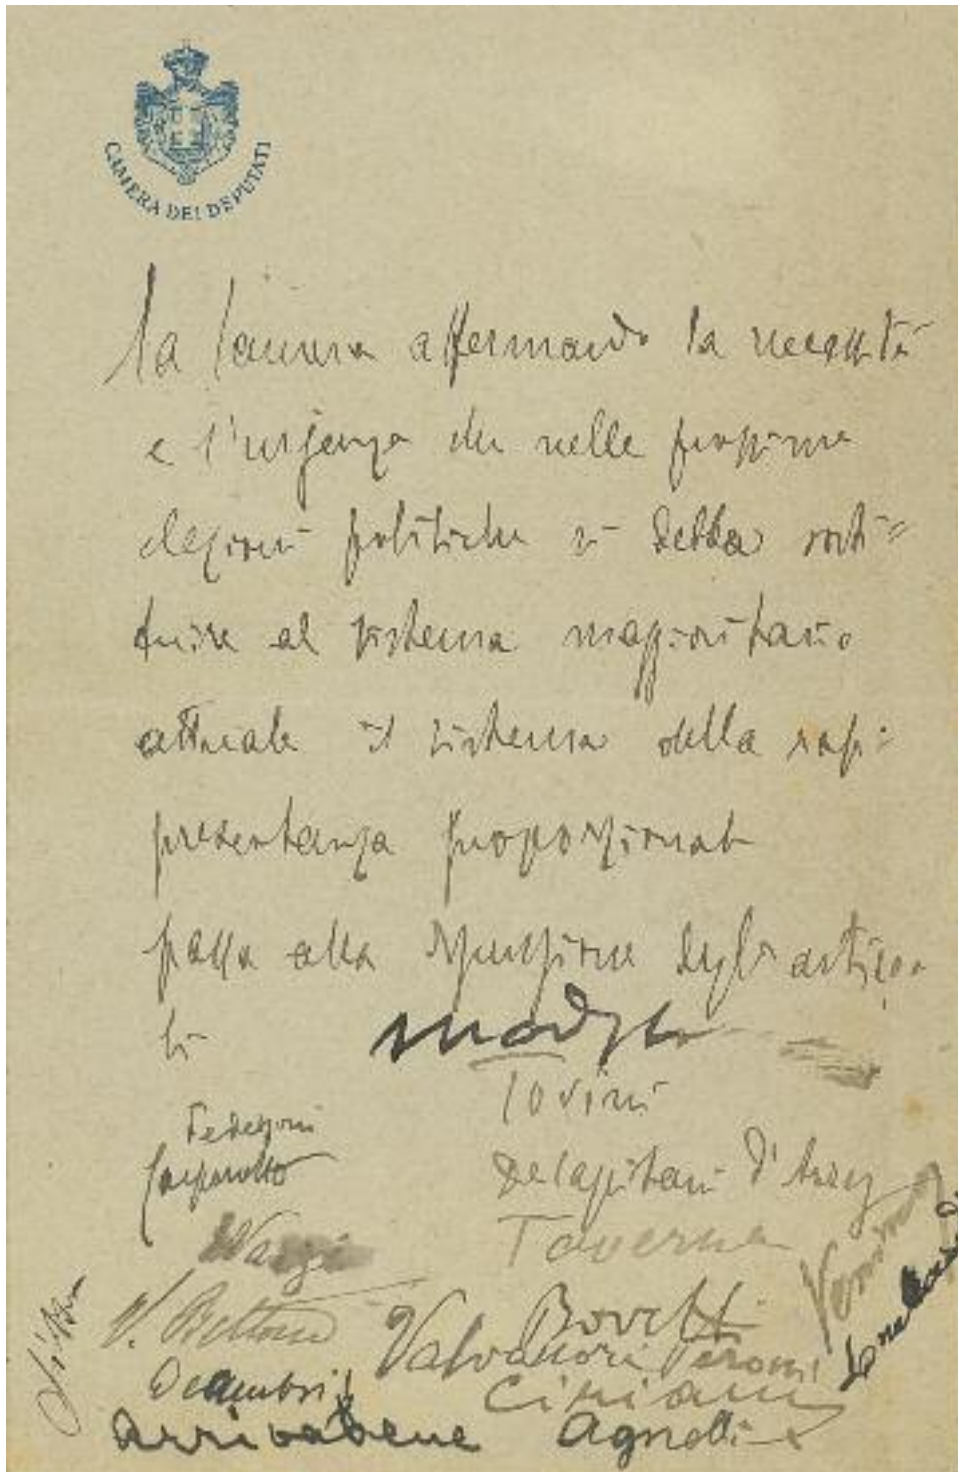 CAMERA DEI DEPUTATI
La Camera affermando la necessità
e l'urgenza che nelle prossime
elezioni politiche si debba sosti=
tuire al sistema maggioritario
attuale il sistema della rap-
presentanza proporzionale
passa alla discussione degli artico
li
Modigliani
Tovini
Federzoni
Gasparotto
Decapitani d'Arzag
Taverna
Nava
V. Bettoni
Bovetti
Valvassori Peroni
Deambris
Ciriani
Arrivabene Agnelli